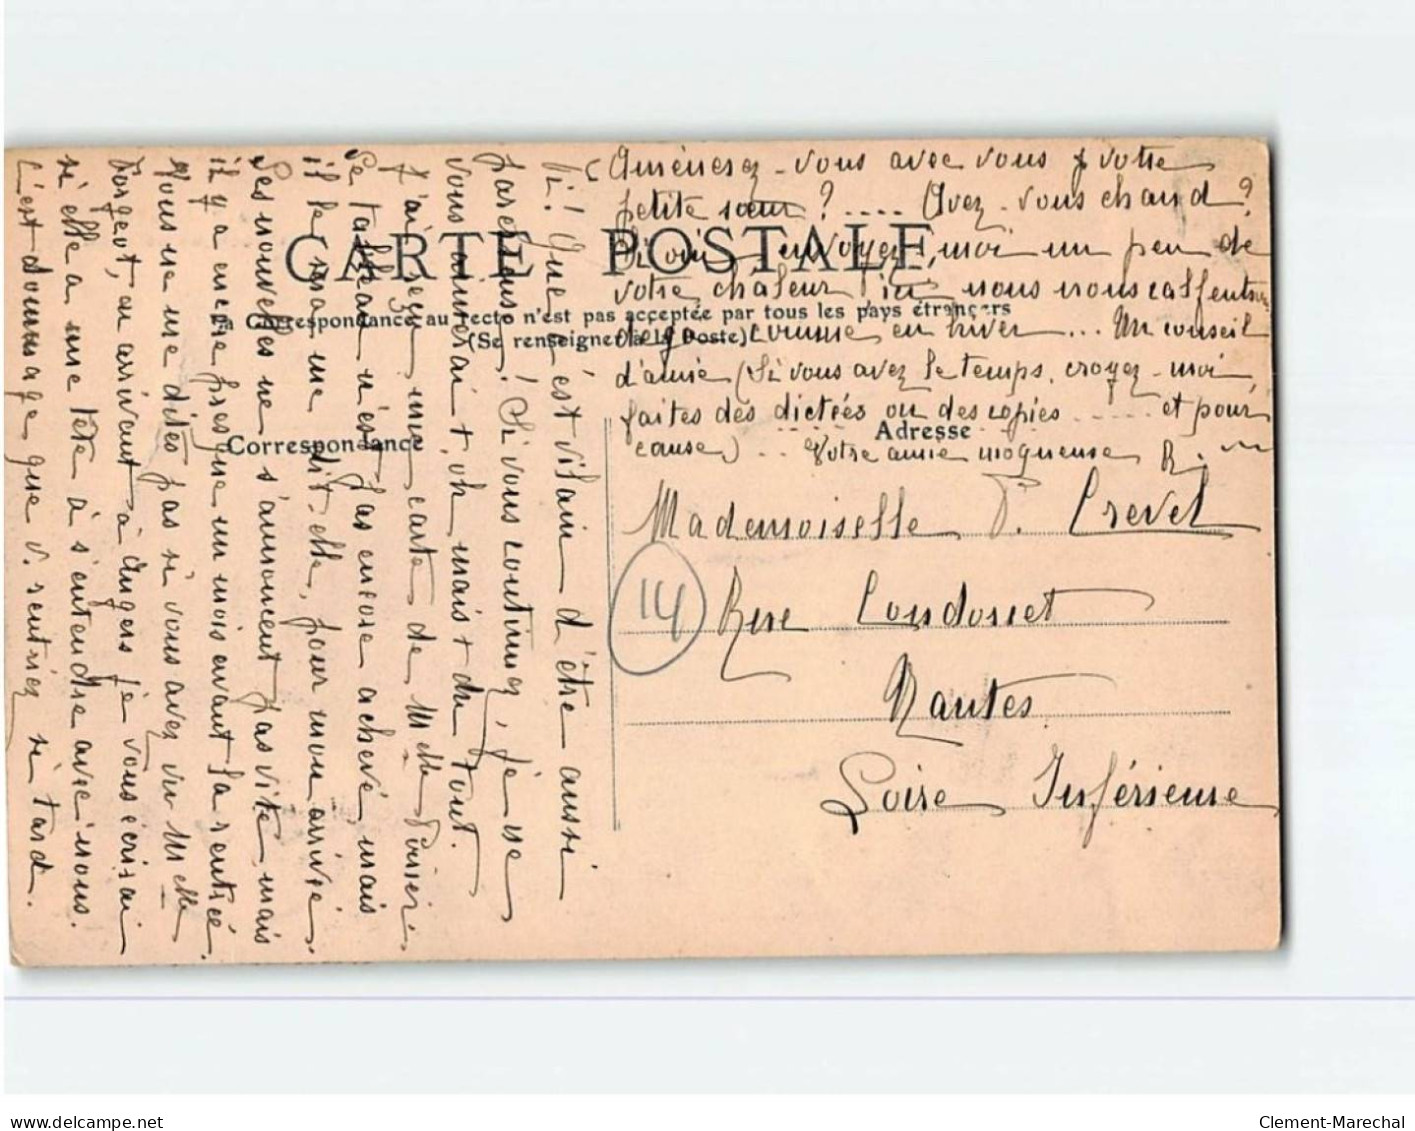 Fi! Que c'est vilain d'être aussi
paresseuse! (Si vous continuez, je ne
vous aimerai + oh mais + du tout.
J'ai reçu une carte de Melle Poirier.
Le tableau n'est pas encore achevé mais
il le sera me dit-elle, pour mon arrivée.
Les nouvelles ne s'annoncent pas vite, mais
il y a encore presque un mois avant la rentrée.
Vous ne me dites pas si vous avez vu Melle
Forgeot, en arrivant à Angers je vous écrirai
si elle a une tête à s'entendre avec nous.
C'est dommage que v. rentriez si tard.
Amènerez-vous avec vous votre
petite sœur? .... Avez-vous chaud?
Si oui, envoyez-moi un peu de
votre chaleur ici nous nous calfeutrons
comme en hiver ... Un conseil
d'amie (Si vous avez le temps, croyez-moi,
faites des dictées ou des copies ..... et pour
cause) ... Votre amie moqueuse R.
CARTE POSTALE
La Correspondance au recto n'est pas acceptée par tous les pays étrangers
(Se renseigner à la Poste)
Correspondance
Adresse
Mademoiselle P. Crevel
14
Rue Condorcet
Nantes
Loire Inférieure
delcampe.net
Clement-Marechal